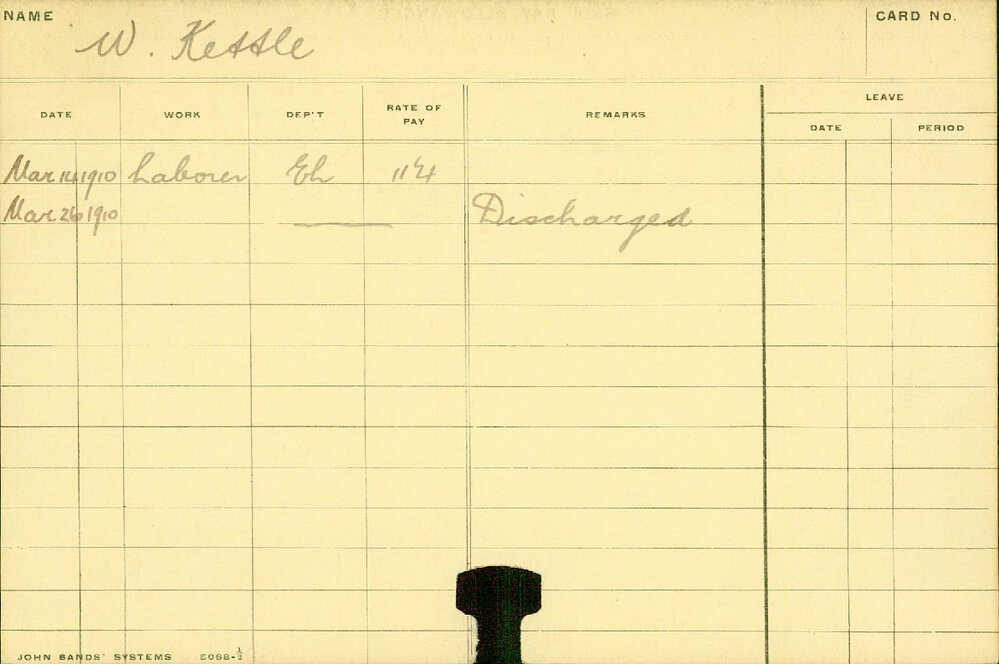 NAME W. Kettle CARD No.
DATE WORK DEP'T RATE OF PAY REMARKS LEAVE
DATE PERIOD
Mar 14 1910 Laborer
Mar 26 1910 Discharged
JOHN SANDS' SYSTEMS